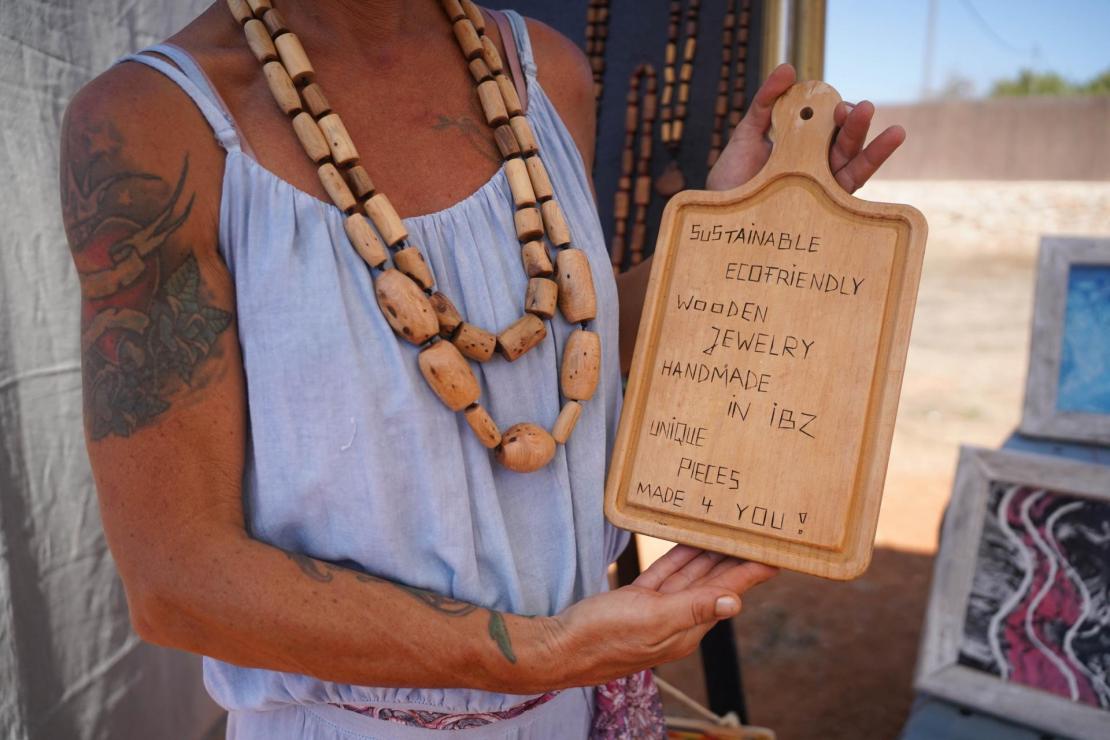 SUSTAINABLE
ECOFRIENDLY
WOODEN
JEWELRY
HANDMADE
IN IBZ
UNIQUE
PIECES
MADE 4 YOU!